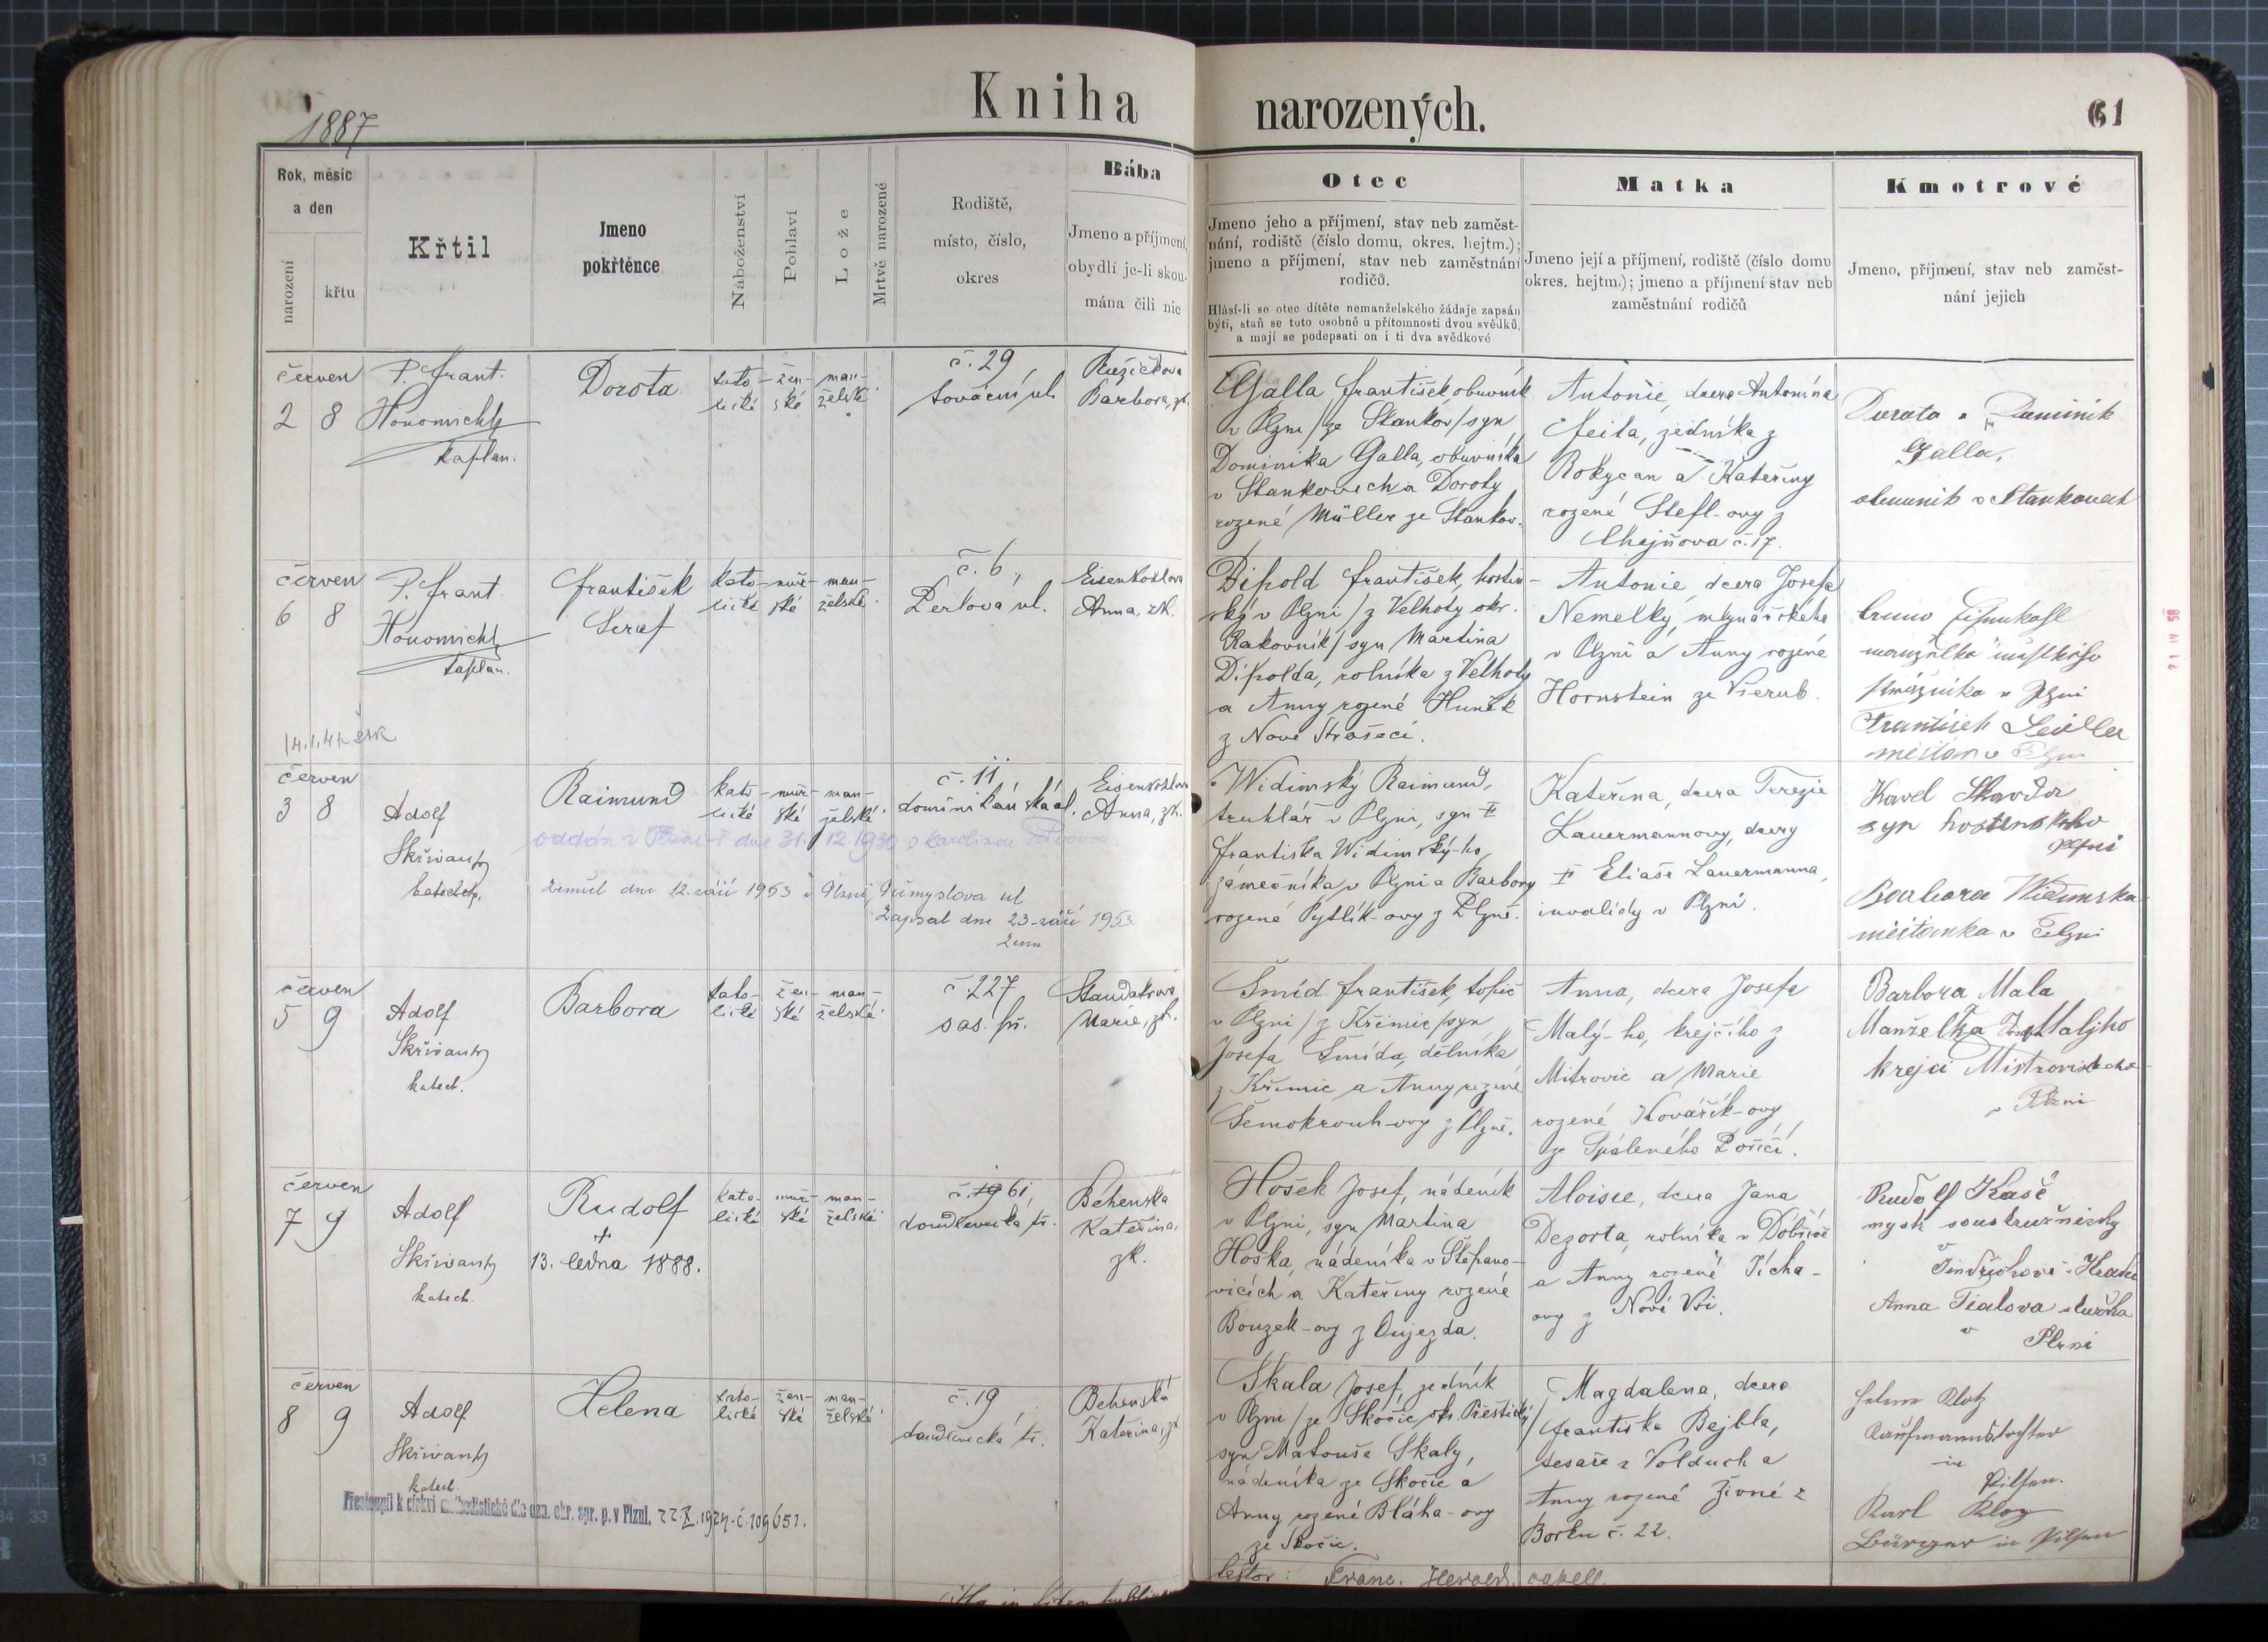 Kniha narozených.
61
1887
Rok, měsíc
a den
narození
křtu
Křtil
Jmeno
pokřtěnce
Náboženství
Pohlaví
Lože
Mrtvě narozené
Rodiště,
místo, číslo,
okres
Bába
Jmeno a příjmení,
obydlí je-li skou-
mána čili nic
Otec
Jmeno jeho a příjmení, stav neb zaměst-
nání, rodiště (číslo domu, okres. hejtm.);
jmeno a příjmení, stav neb zaměstnání
rodičů.
Hlásí-li se otec dítěte nemanželského žádaje zapsán
býti, staň se toto osobně u přítomnosti dvou svědků,
a mají se podepsati on i ti dva svědkové
Matka
Jmeno její a příjmení, rodiště (číslo domu
okres. hejtm.); jmeno a příjmení stav neb
zaměstnání rodičů
Kmotrové
Jmeno, příjmení, stav neb zaměst-
nání jejich
červen
2 8
P. Frant.
Honomichl
kaplan.
Dorota
kato-
lické
žen-
ské
man-
želské
č. 29
Růžičkova
Barbora, zk.
Galla František, obuvník
v Plzni /ze Stankov/ syn
Dominika Galla, obuvníka
v Stankovech a Doroty
rozené Müller ze Stankov.
Antonie, dcera Antonína
zedníka z
Rokycan a Kateřiny
rozené Stefl-ovy z
č. 17.
Dorota a Dominik
Galla,
obuvník v Stankovech
červen
6 8
P. Frant.
Honomichl
kaplan.
František
Seraf
kato-
lické
muž-
ské
man-
želské
č. 6,
Perlová ul.
Anna, zk.
Dipold František, hostin-
ský v Plzni / z Velhoty okr.
Rakovník/ syn Martina
Dipolda, rolníka z Velhoty
a Anny rozené
z Nové Strašecí.
Antonie, dcera Josefa
Nemelky, mlynářského
v Plzni a Anny rozené
Hornstein ze Všerub.
v Plzni
František
měšťan v Plzni
14.1.41
červen
3 8
Adolf
Skřivan
Raimund
kato-
lické
muž-
ské
man-
želské
č. 11
dominikánská ul.
Anna, zk.
oddán v Plzni dne 31. 12. 1930 s Karolinou
Zemřel dne 12. září 1953 v Plzni, Průmyslova ul
Zapsal dne 23. září 1953.
Widimský Raimund,
truhlář v Plzni, syn
Františka Widimský-ho,
zámečníka v Plzni a Barbory
rozené Pytlík-ovy z Plzně.
Kateřina, dcera Terezie
Lauermannovy, dcery
Eliáše Lauermanna,
invalidy v Plzni.
Karel
syn hostinského
Barbora
měšťanka v Plzni
červen
5 9
Adolf
Skřivan
katech.
Barbora
kato-
lické
žen-
ské
man-
želské
č 227
sas. př.
Marie, zk.
Šmíd František, topič
v Plzni / z Křimic/ syn
Josefa Šmída, dělníka
z Křimic a Anny rozené
Šemokrouh-ovy z Plzně.
Anna, dcera Josefa
Malý-ho, krejčího z
Mitrovic a Marie
rozené Kovářík-ovy
ze Spáleného Poříčí.
Barbora Mala
Manželka Malího
krejci
v Plzni
červen
7 9
Adolf
Skřivan
katech.
Rudolf
†
13. ledna 1888.
kato-
lické
muž-
ské
man-
želské
č. 19 61,
doudlevecká tř.
Behenska
Kateřina,
zk.
Hošek Josef, nádeník
v Plzni, syn Martina
Hoška, nádeníka v Štěpano-
vicích a Kateřiny rozené
Bouzek-ovy z Oujezda.
Aloisie, dcera Jana
Dezorta, rolníka v Dobřívě
a Anny rozené Tícha-
ovy z Nové Vsi.
Rudolf Kasč
v
Anna služka
v
Plzni
červen
8 9
Adolf
Skřivan
katech.
Helena
kato-
lické
žen-
ské
man-
želské
č. 19
doudlevecká tř.
Behenská
Kateřina, zk
Přestoupil k církvi methodistické dle ozn. okr. spr. p. v Plzni. 22.X.1924. č. 109651.
Skala Josef, zedník
v Plzni / ze Skočic okr. Přeštický/
syn Matouše Skaly,
nádeníka ze Skočic a
Anny rozené Bláha-ovy
ze Skočic.
Magdalena, dcera
Františka Bejbla,
tesaře z Volduch a
Anny rozené Živné z
Borku č. 22.
Kaufmannstochter
in
Pilsen.
Karl
Bürger in Pilsen
Franc.